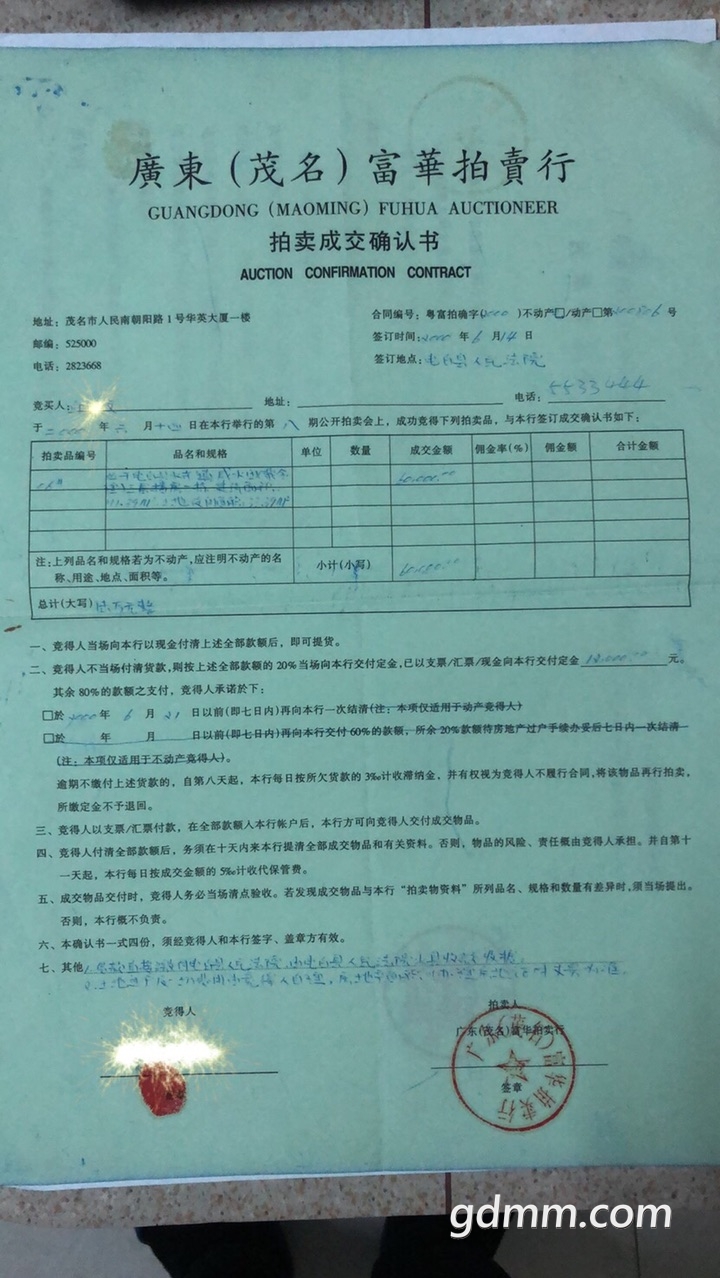 廣東（茂名）富華拍賣行
GUANGDONG (MAOMING) FUHUA AUCTIONEER
拍卖成交确认书
AUCTION CONFIRMATION CONTRACT
地址：茂名市人民南朝阳路1号华英大厦一楼
邮编：525000
电话：2823668
合同编号：粤富拍确字(2000)不动产□/动产□第 号
签订时间：2000年6月14日
签订地点：电白县人民法院
竞买人： 地址： 电话：5533444
于二000年六月十四日在本行举行的第八期公开拍卖会上，成功竞得下列拍卖品，与本行签订成交确认书如下：
拍卖品编号 品名和规格 单位 数量 成交金额 佣金率(%) 佣金额 合计金额
60.000.00
注：上列品名和规格若为不动产，应注明不动产的名称、用途、地点、面积等。 小计(小写) 60.000.00
总计(大写) 陆万元整
一、竞得人当场向本行以现金付清上述全部款额后，即可提货。
二、竞得人不当场付清货款，则按上述全部款额的20%当场向本行交付定金，已以支票/汇票/现金向本行交付定金12.000.00元。
其余80%的款额之支付，竞得人承诺於下：
□於2000年6月21日以前(即七日内)再向本行一次结清(注：本项仅适用于动产竞得人)
□於 年 月 日以前(即七日内)再向本行交付60%的款额，所余20%款额待房地产过户手续办妥后七日内一次结清
(注：本项仅适用于不动产竞得人)。
逾期不缴付上述货款的，自第八天起，本行每日按所欠货款的3‰计收滞纳金，并有权视为竞得人不履行合同，将该物品再行拍卖，
所缴定金不予退回。
三、竞得人以支票/汇票付款，在全部款额入本行帐户后，本行方可向竞得人交付成交物品。
四、竞得人付清全部款额后，务须在十天内来本行提清全部成交物品和有关资料。否则，物品的风险、责任概由竞得人承担。并自第十
一天起，本行每日按成交金额的5‰计收代保管费。
五、成交物品交付时，竞得人务必当场清点验收。若发现成交物品与本行“拍卖物资料”所列品名、规格和数量有差异时，须当场提出。
否则，本行概不负责。
六、本确认书一式四份，须经竞得人和本行签字、盖章方有效。
七、其他
竞得人 拍卖人
广东(茂名)富华拍卖行
签章
广东(茂名)富华拍卖行
gdmm.com